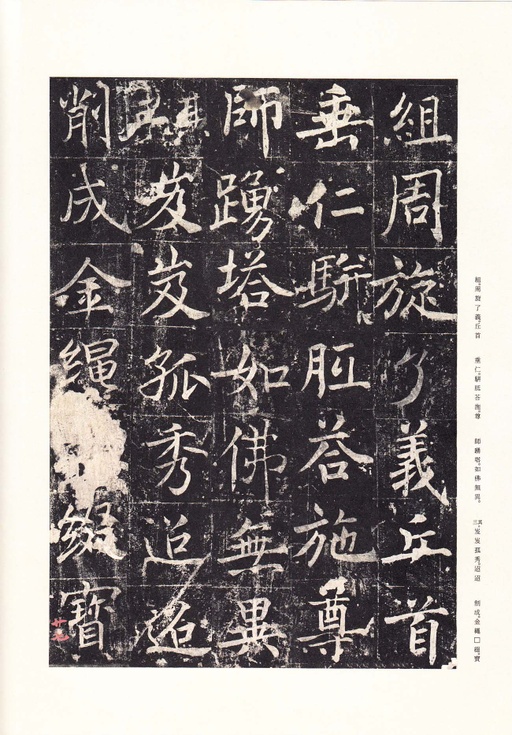 組周旋了義丘首
垂仁駢胝荅施尊
師踴塔如佛無異
其三岌岌孤秀迢迢
削成金繩綴寶
組。周旋了義。丘首 垂仁。駢胝荅施。尊 師踴塔。如佛無異。 其三。岌岌孤秀。迢迢 削成。金繩□綴。寶